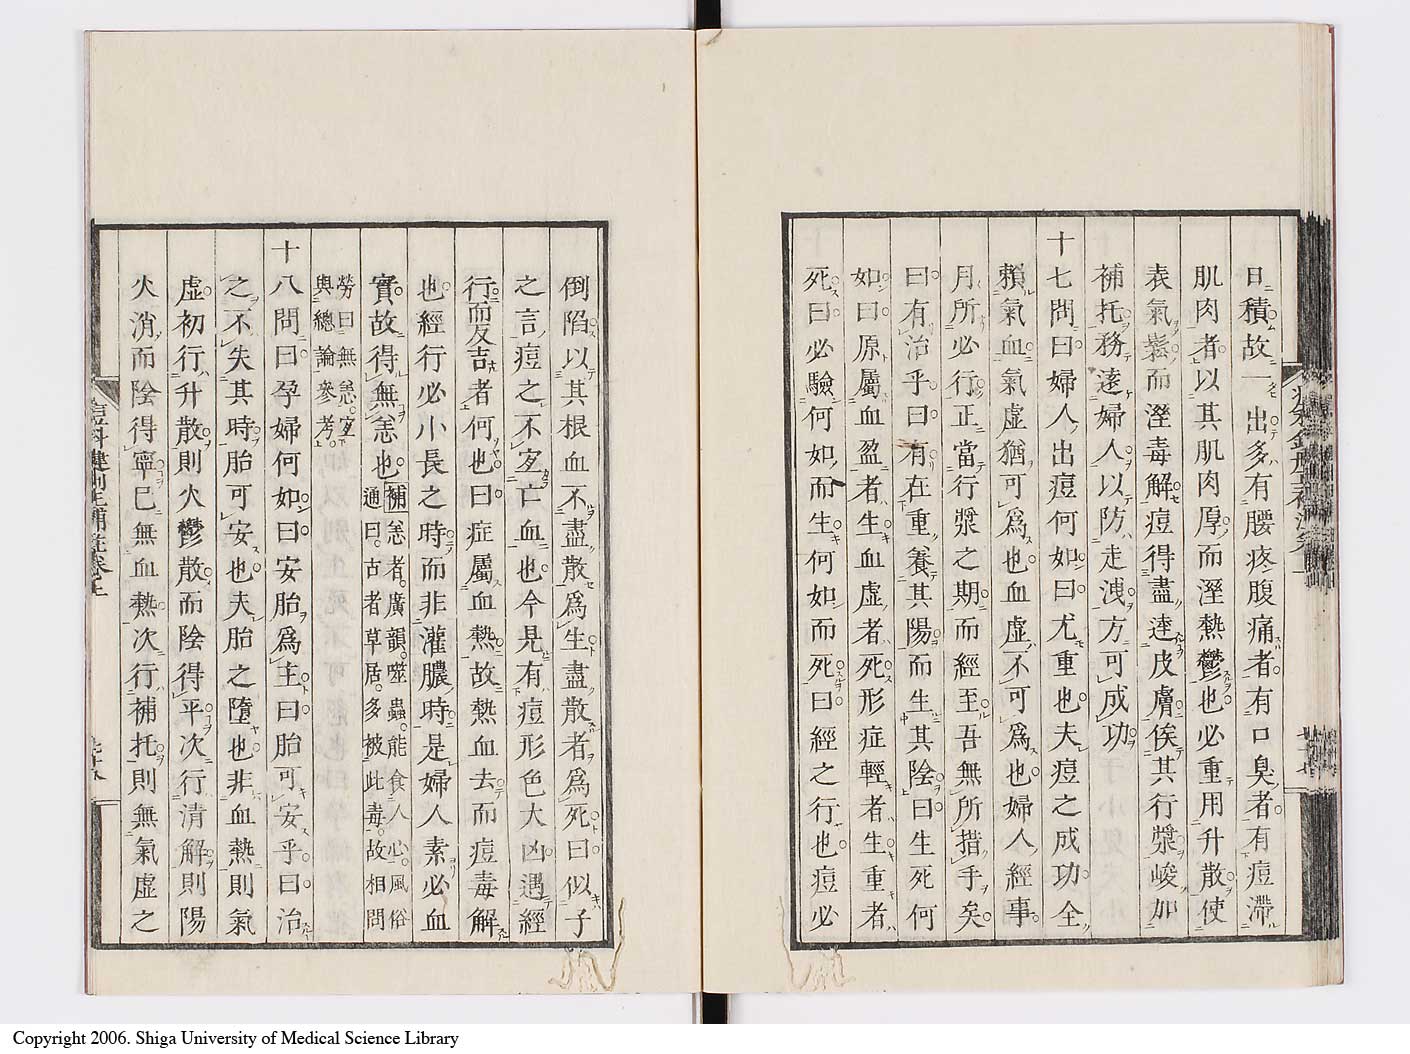 日積故一出多有腰疼腹痛者有口臭者有痘滯
肌肉者以其肌肉厚而溼熱鬱也必重用升散使
表氣鬆而溼毒解痘得盡達皮膚俟其行漿峻加
補托務遠婦人以防走洩方可成功
十七問曰婦人出痘何如曰尤重也夫痘之成功全
賴氣血氣虛猶可為也血虛不可為也婦人經事
月所必行正當行漿之期而經至吾無所措手矣
曰有治乎曰有在重養其陽而生其陰曰生死何
如曰原屬血盈者生血虛者死形症輕者生重者
死曰必驗何如而生何如而死曰經之行也痘必
倒陷以其根血不盡散為生盡散者為死曰似子
之言痘之不宜亡血也今見有痘形色大凶遇經
行而反吉者何也曰症屬血熱故熱血去而痘毒解
也經行必小長之時而非灌膿時是婦人素必血
實故得無恙也補恙者廣韻噬蟲能食人心風俗
通曰古者草居多被此毒故相問
勞曰無恙宜
與總論參考
十八問曰孕婦何如曰安胎為主曰胎可安乎曰治
之不失其時胎可安也夫胎之墮也非血熱則氣
虛初行升散則火鬱散而陰得平次行清解則陽
火消而陰得寧已無血熱次行補托則無氣虛之